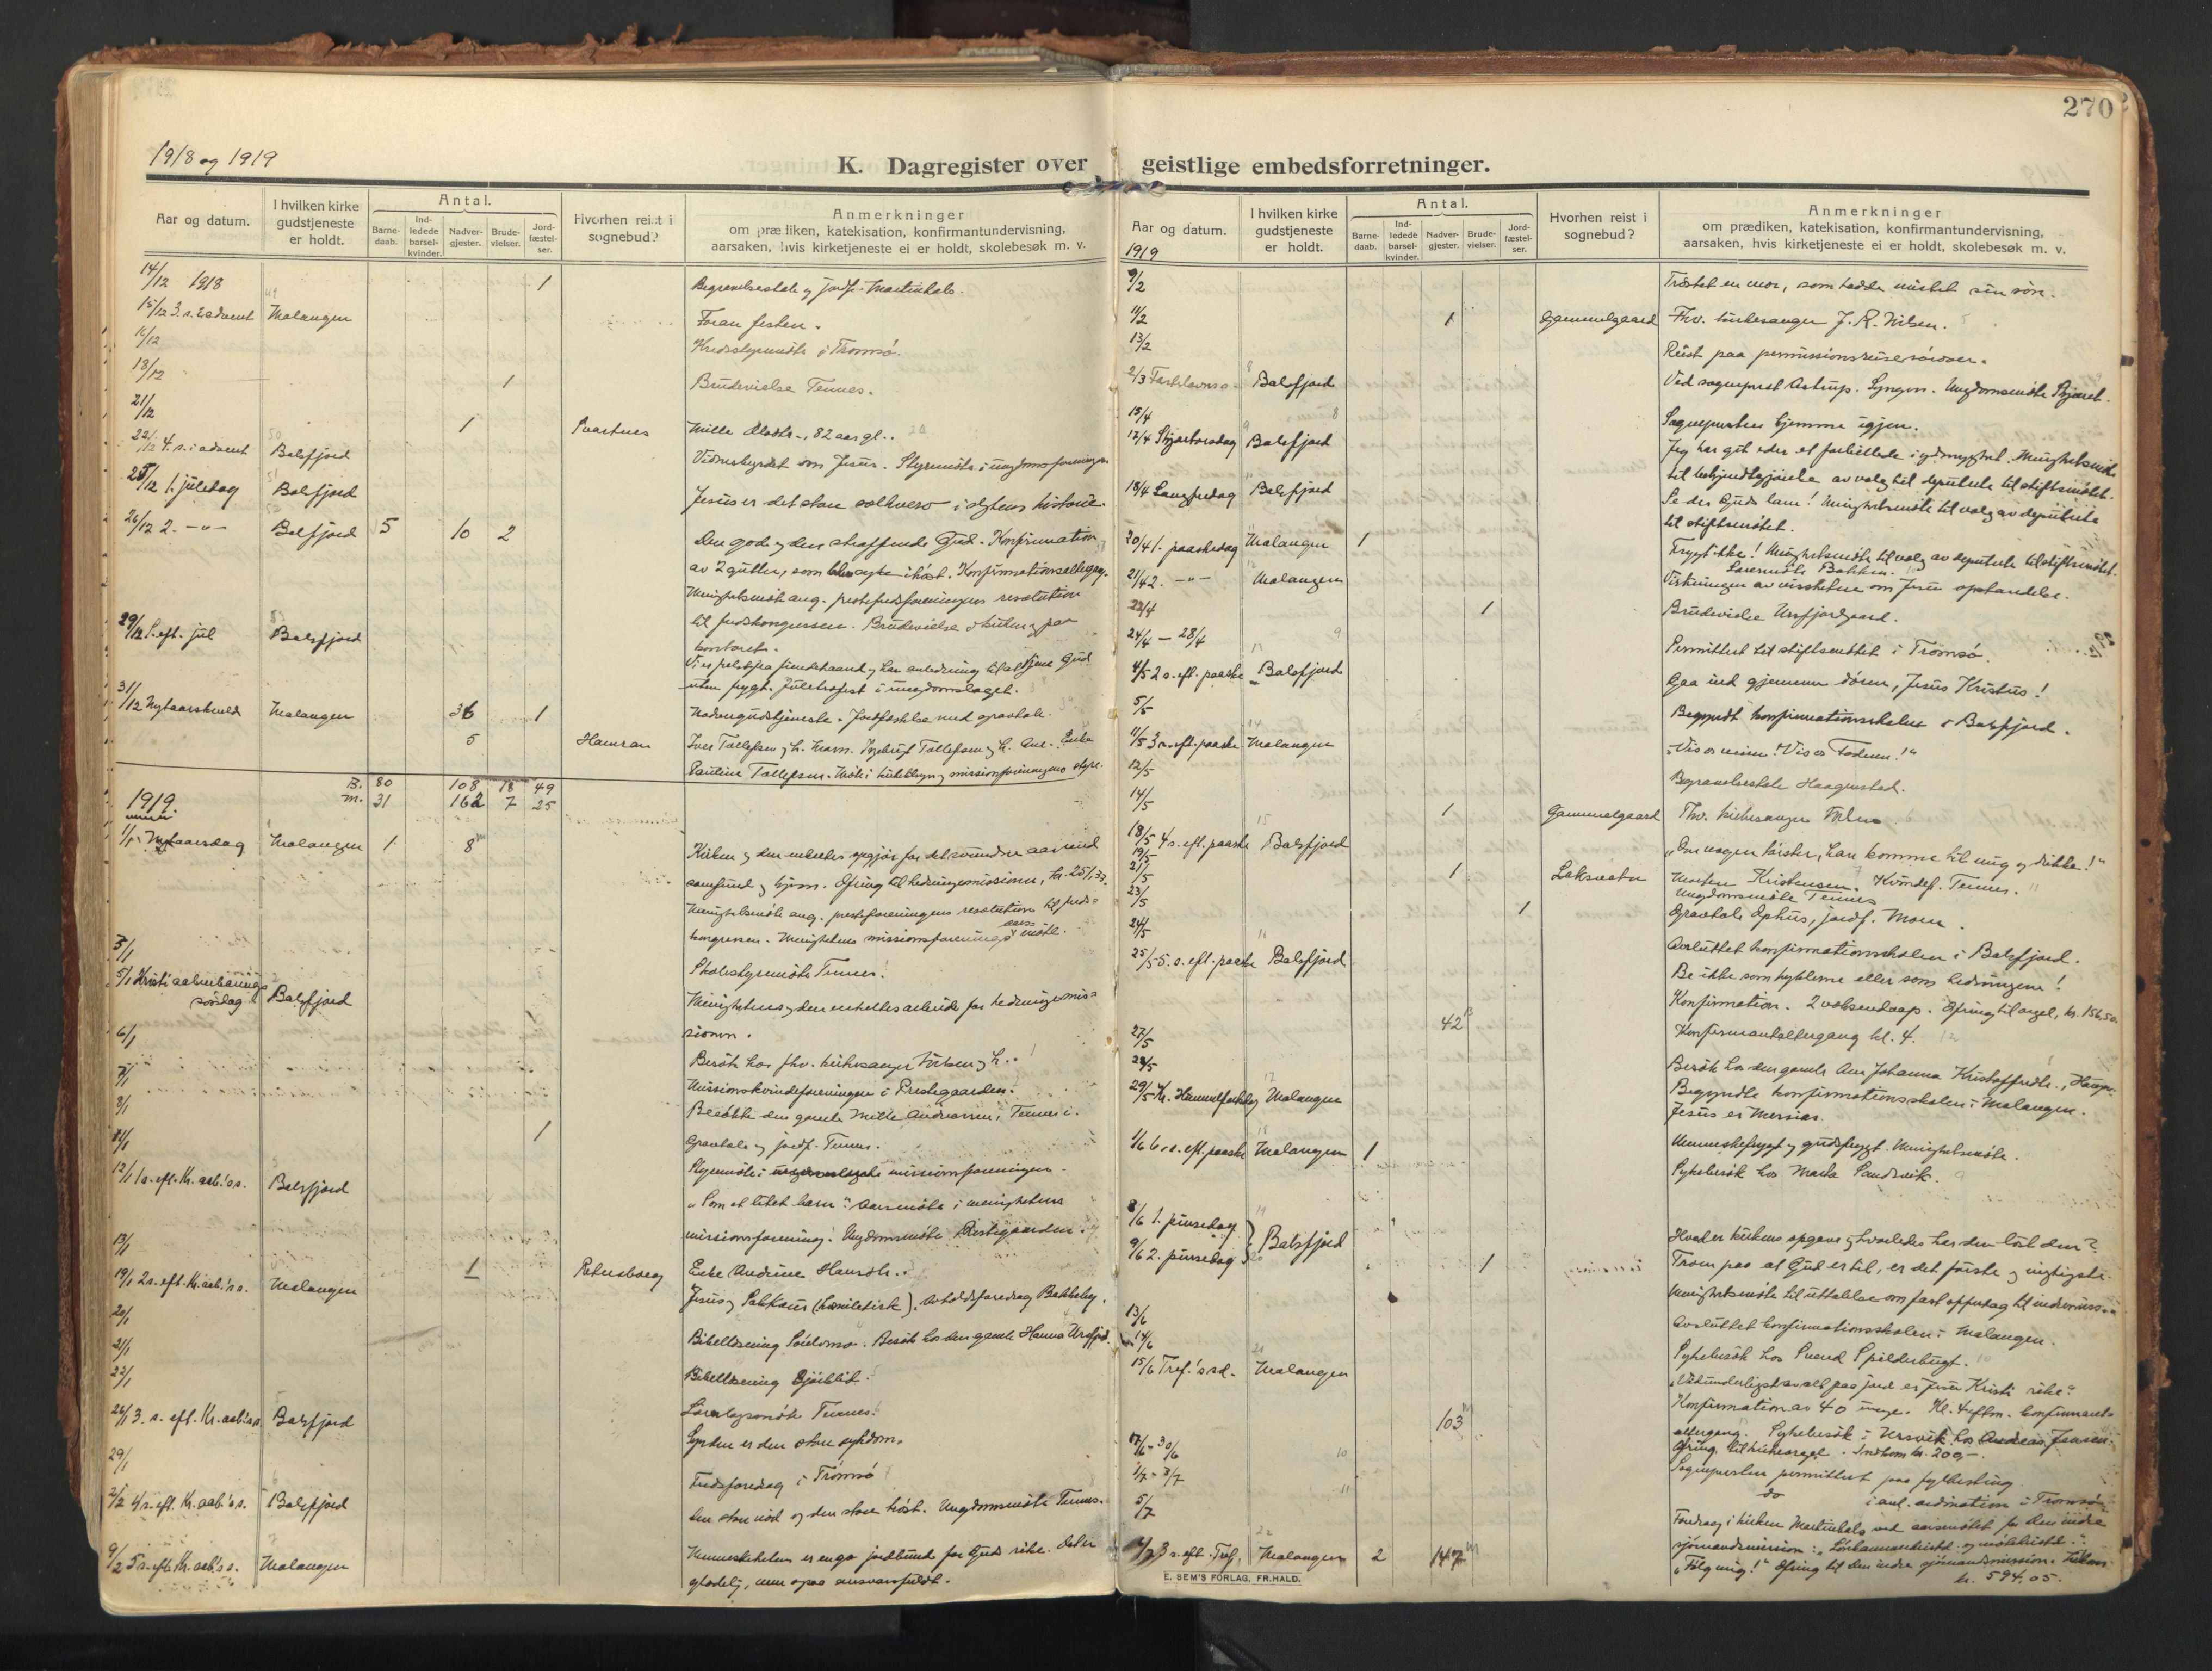 270
1918 og 1919
K. Dagregister over geistlige embedsforretninger.
Aar og datum.
I hvilken kirke gudstjeneste er holdt.
Antal.
Barne-daab.
Ind-ledede barsel-kvinder.
Nadver-gjester.
Brude-vielser.
Jord-fæstel-ser.
Hvorhen reist i sognebud?
Anmerkninger
om prædiken, katekisation, konfirmantundervisning,
aarsaken, hvis kirketjeneste ei er holdt, skolebesøk m. v.
14/12 1918 1 Begravelsestale og jordf. Martinhals.
15/12 3. s. i advent Malangen Foran festen.
16/12 Kredsstyremøte i Tromsø.
18/12 1 Brudevielse Tennes.
21/12 1 Svartnes 82 aar gl.
22/12 4. s. i advent Balsfjord Vidnesbyrdet om Jesus. Styremøte i ungdomsforeningen
25/12 1. juledag Balsfjord Jesus er det store i historie.
26/12 2. -"- Balsfjord 5 10 2 Den gode og den straffende Gud. Konfirmation
av 2 gutter, som blev syke ihøst. Konfirmationsaltergang.
Menighetsmøte ang. prestefredsforeningens resolution
til fredskongressen. Brudevielse i kirken og paa
kontoret.
29/12 S. eft. jul Balsfjord fiendehaand og har anledning til at tjene Gud
uten frygt. Juletræfest i ungdomslaget.
31/12 Nytaarskveld Malangen 36 1 Nadvergudstjeneste. Jordfæstelse med gravtale.
5 Hamran Iver Tollefsen og h.
Pauline Tollefsen. missionsforeningens styre.
B. 80 108 18 49
M. 31 162 7 25
1919.
1/1 Nytaarsdag Malangen 1 8 Kirken og den enkeltes opgjør for det svundne aar med
samfund og hjem. Ofring til hedningemissionen, kr. 25,37.
Menighetsmøte ang. presteforeningens resolution til freds-
kongressen. Menighetens missionsforenings aarsmøte.
3/1 Skolestyremøte Tennes.
5/1 Kristi aabenbarings søndag Balsfjord Menighetens og den enkeltes arbeide for hedningemis-
sionen.
6/1 Besøk hos fhv. kirkesanger Nilsen og h.
7/1 Missionskvindeforeningen i Prestegaarden.
8/1 Besøkte den gamle Andreassen i Tennes.
11/1 1 Gravtale og jordf. Tennes.
12/1 1 s. eft. Kr. aab. s. Balsfjord Styremøte i missionsforeningen.
"Som et litet barn". Aarsmøte i menighetens
missionsforening. Ungdomsmøte Prestegaarden.
13/1 1 Petersborg Enke Andrine Hansdtr.
19/1 2 s. eft. Kr. aab. s. Malangen Jesus og Sakkæus (homiletisk). Avholdsforedrag Bakkeby.
20/1 Bibellæsning. Besøk hos den gamle Hanna
21/1 Bibellæsning
22/1 Tennes.
26/1 3. s. eft. Kr. aab. s. Balsfjord Synden er den store sykdom.
29/1 Fredsforedrag i Tromsø
2/2 4 s. eft. Kr. aab. s. Balsfjord Den store nød og den store høst. Ungdomsmøte Tennes.
9/2 5 s. eft. Kr. aab. s. Malangen Menneskeheten er en god jordbund for Guds rike. Det er
glædelig, men ogsaa ansvarsfuldt.
Aar og datum.
I hvilken kirke gudstjeneste er holdt.
Antal.
Barne-daab.
Ind-ledede barsel-kvinder.
Nadver-gjester.
Brude-vielser.
Jord-fæstel-ser.
Hvorhen reist i sognebud?
Anmerkninger
om prædiken, katekisation, konfirmantundervisning,
aarsaken, hvis kirketjeneste ei er holdt, skolebesøk m. v.
1919
9/2 Trøstet en mor, som hadde mistet sin søn.
11/2 1 Gammelgaard Fhv. kirkesanger J. R. Nilsen.
13/2 Reist paa permissionsreise sørover.
2/3 Fastelavns s. Balsfjord Ved sogneprest Astrup. Lyngen. Ungdomsmøte
15/4 Sognepresten hjemme igjen.
17/4 Skjærtorsdag Balsfjord Jeg har git eder et forbillede i ydmyghet. Menighetsmøte
til bekjendtgjørelse av valg til deputerte til stiftsmøtet.
18/4 Langfredag Balsfjord Se der Guds lam! Menighetsmøte til valg av deputerte
til stiftsmøtet.
20/4 1. paaskedag Malangen 1 Frygt ikke! Menighetsmøte til valg av deputerte til stiftsmøtet.
Bakken.
21/4 2. -"- Malangen Virkningen av vissheten om Jesu opstandelse.
22/4 1 Brudevielse Ursfjordgaard.
24/4 - 28/4 Permittert til stiftsmøtet i Tromsø.
4/5 2 s. eft. paaske Balsfjord Gaa ind gjennem døren, Jesus Kristus!
5/5 Begyndt konfirmationsskolen i Balsfjord.
11/5 3 s. eft. paaske Malangen "Vis os veien! Vis os Faderen!"
12/5 Begravelsestale Haagenstad.
14/5 1 Gammelgaard Fhv. kirkesanger Nilsen
18/5 4 s. eft. paaske Balsfjord "Om nogen tørster, han komme til mig og drikke!"
19/5
21/5 1 Laksvatn Morten Kristensen. Kvindef. Tennes.
Ungdomsmøte Tennes
23/5 1 Gravtale Ophus, jordf. Moen.
24/5 Avsluttet konfirmationsskolen i Balsfjord.
25/5 5. s. eft. paaske Balsfjord Be ikke som hyklerne eller som hedningene!
Konfirmation. 2 voksendaap. Ofring til orgel, kr. 156,50.
42 Konfirmantaltergang kl. 4.
27/5 Besøk hos den gamle Ane Johanna Kristoffersdtr.
28/5 Begyndte konfirmationsskolen i Malangen.
29/5 Kr. Himmelfartsdag Malangen Jesus er Messias.
1/6 6. s. eft. paaske Malangen 1 Menneskefrygt og gudsfrygt. Menighetsmøte.
Sykebesøk hos Marta Sandsvik.
8/6 1. pinsedag Balsfjord Hvad er kirkens opgave og hvorledes har den løst den?
9/6 2. pinsedag 1 Troen paa at Gud er til, er det første og vigtigste.
Menighetsmøte til uttalelse om fast oppebud til
13/6 Avsluttet konfirmationsskolen i Malangen.
14/6 Sykebesøk hos Svend Spilderbugt.
15/6 Tref. s. Malangen "Vidunderligst av alt paa jord er Jesu Kristi rike".
103 Konfirmation av 40 unge. Kl. 4 eftm. konfirmant-
altergang. Sykebesøk i Ursvik hos Andreas Jensen.
Ofring til kirkeorgel. Indkom kr. 200,-
17/6 - 30/6 Sognepresten permittert paa fylkesting
1/7 - 3/7 do i anl. ordination i Tromsø
5/7 Foredrag i kirken Martinhals ved aarsmøtet for Den indre
sjømandsmission
6/7 3 s. eft. Tref. Malangen 2 147 "Følg mig!" Ofring til den indre sjømandsmission. Indkom
kr. 594,05.
E. SEM'S FORLAG, FR.HALD.